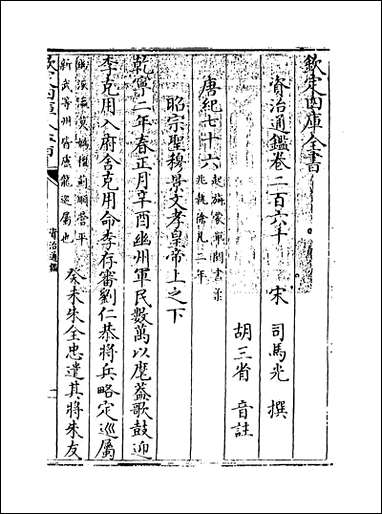 欽定四庫全書
資治通鑑卷二百六十
宋 司馬光 撰
胡三省 音註
唐紀七十六起旃蒙單閼盡柔
兆執徐凡二年
昭宗聖穆景文孝皇帝上之下
乾寧二年春正月辛酉幽州軍民數萬以麾蓋歌鼓迎
李克用入府舍克用命李存審劉仁恭將兵略定巡屬
媯 檀 莫 薊順營平
新武等州皆盧龍巡屬也
癸未朱全忠遣其將朱友
資治通鑑